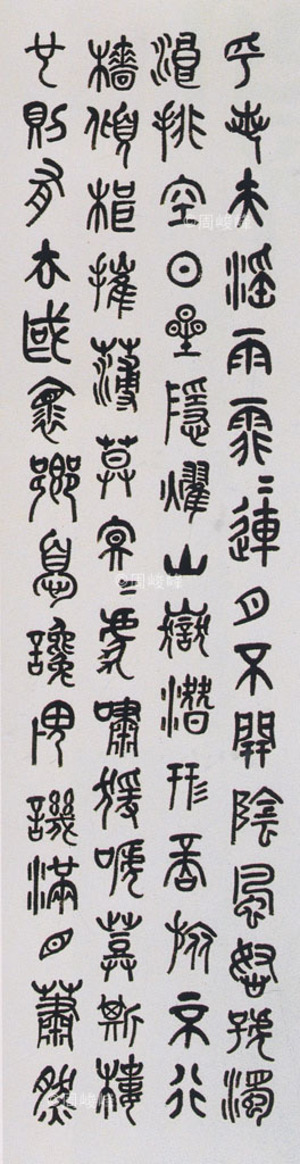 乎若夫淫雨霏霏連月不開陰風怒號濁
浪排空日星隱燿山嶽潛形商旅不行
檣傾楫摧薄莫冥冥虎嘯猨啼登斯樓
也則有去國懷鄉憂讒畏譏滿目蕭然
©周峻峰
©周峻峰
©周峻峰